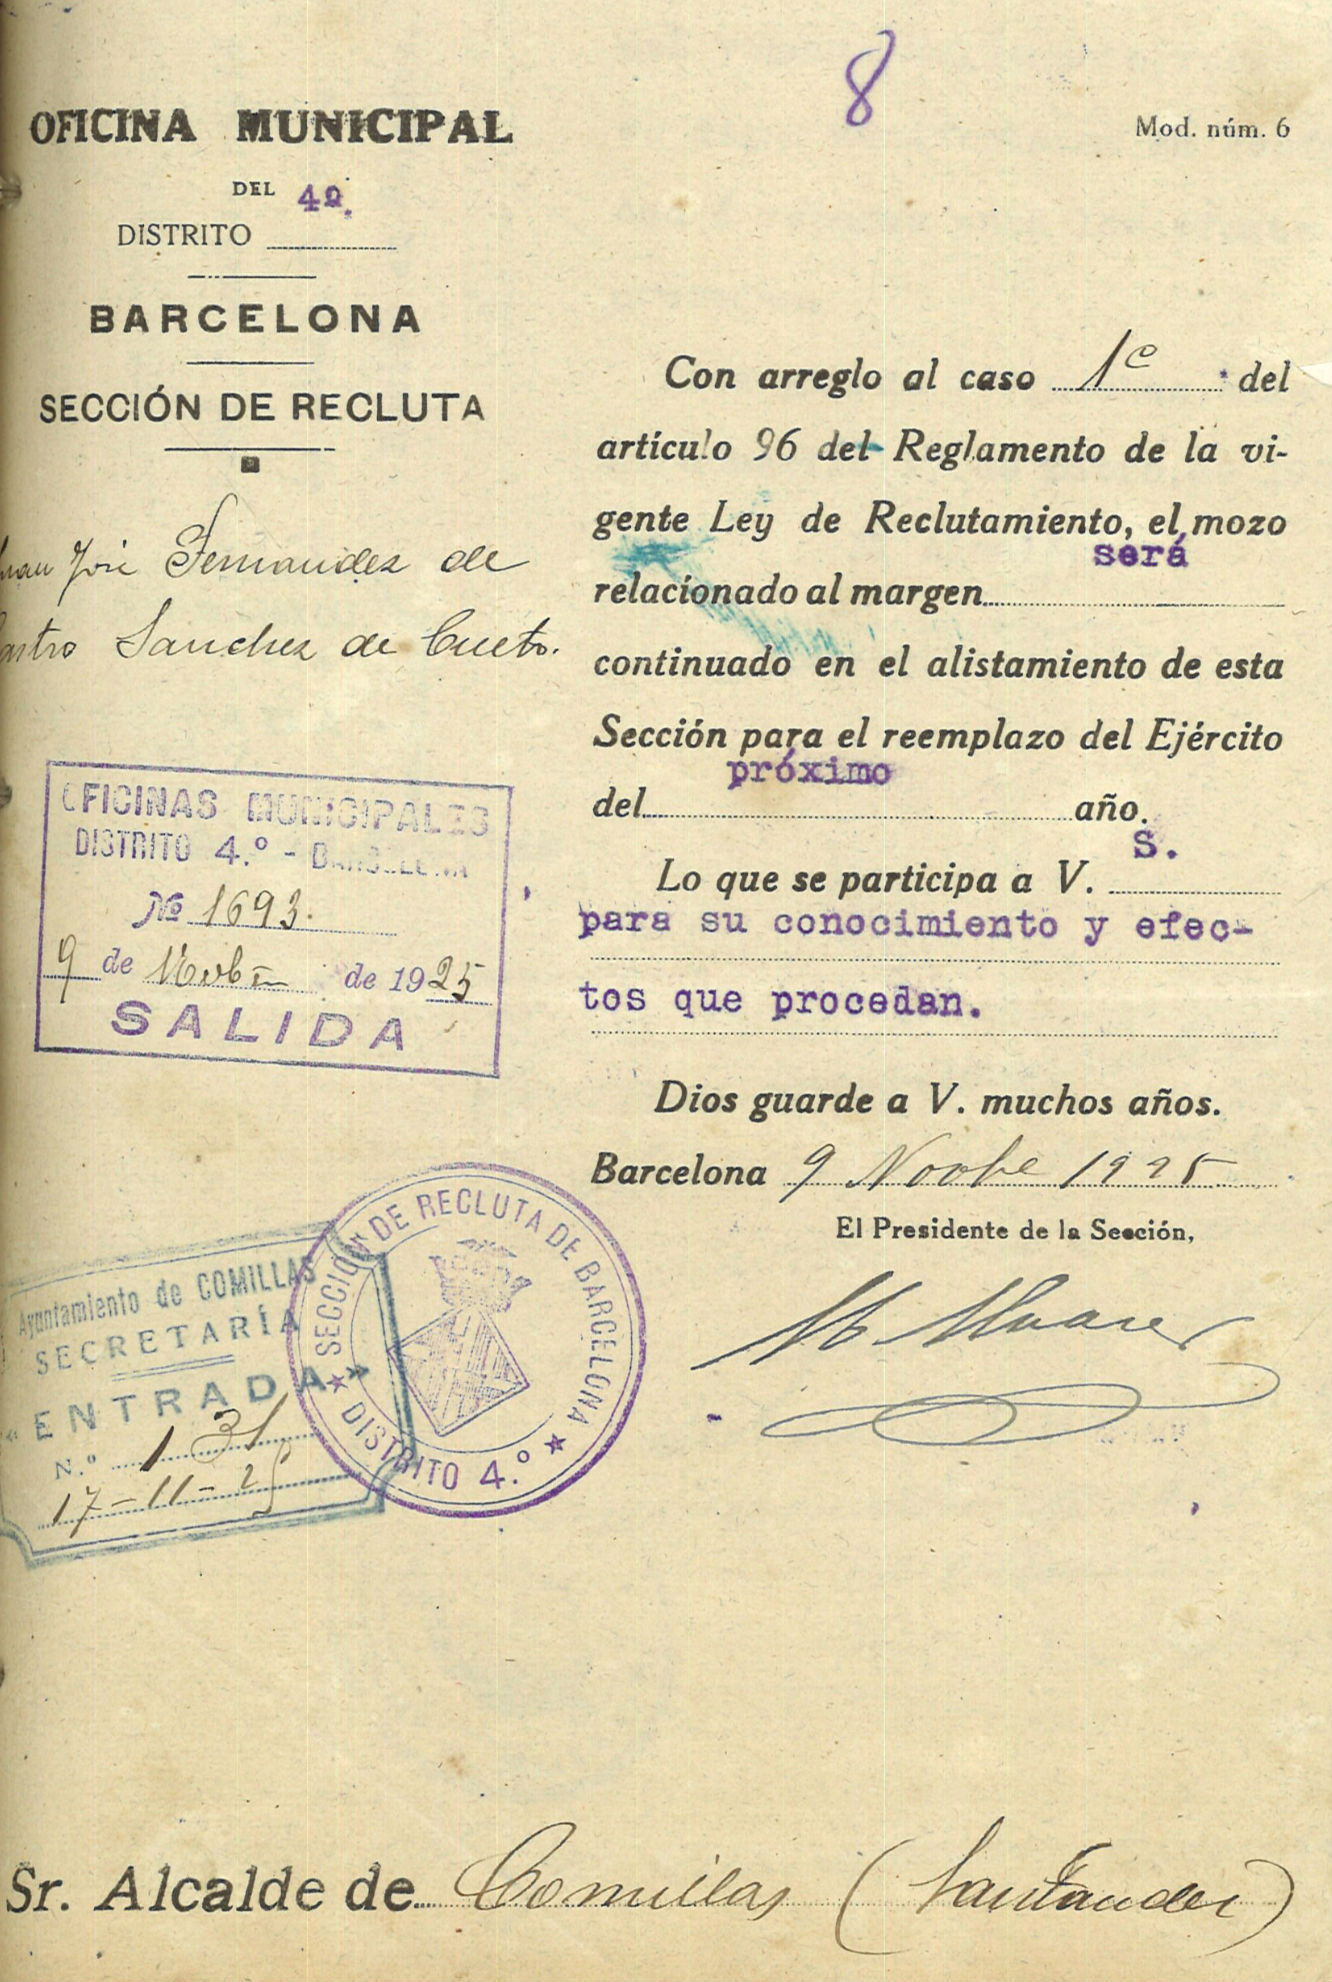 8
Mod. núm. 6
OFICINA MUNICIPAL
DEL 4º.
DISTRITO
BARCELONA
SECCIÓN DE RECLUTA
José Fernandez de
Sanchez de Cueto.
OFICINAS MUNICIPALES
DISTRITO 4.º - BARCELONA
Nº 1693.
9 de Novbre de 1925
SALIDA
Con arreglo al caso 1º del
artículo 96 del Reglamento de la vi-
gente Ley de Reclutamiento, el mozo
será
relacionado al margen
continuado en el alistamiento de esta
Sección para el reemplazo del Ejército
próximo
del año.
S.
Lo que se participa a V.
para su conocimiento y efec-
tos que procedan.
Dios guarde a V. muchos años.
Barcelona 9 Novbe 1925
El Presidente de la Sección,
M. Alvarez
SECCIÓN DE RECLUTA DE BARCELONA
DISTRITO 4.º
Ayuntamiento de COMILLAS
SECRETARÍA
«ENTRADA»
N.º 131
17-11-25
Sr. Alcalde de Comillas (Santander)